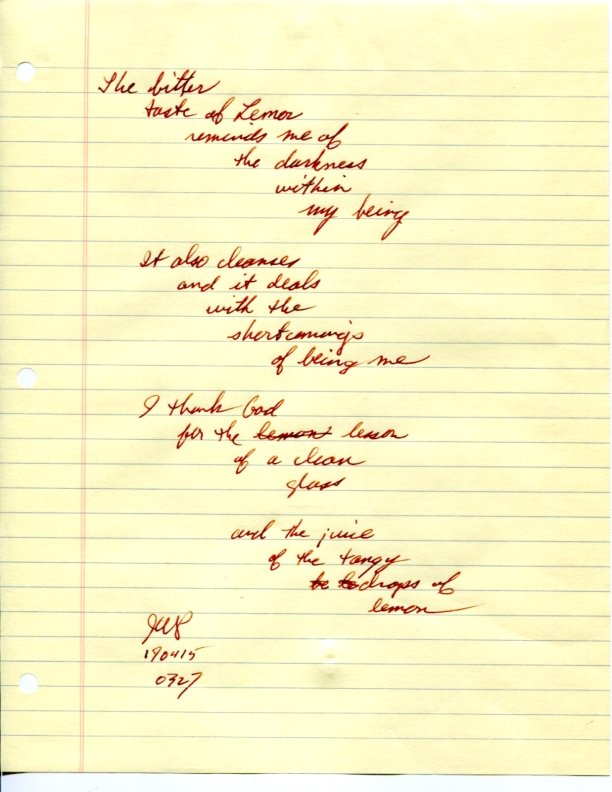 The bitter
taste of Lemon
reminds me of
the darkness
within
my being
It also cleanses
and it deals
with the
shortcomings
of being me
I thank God
for the lemon lesson
of a clean
glass
and the juice
of the tangy
drops of
lemon
190415
0327